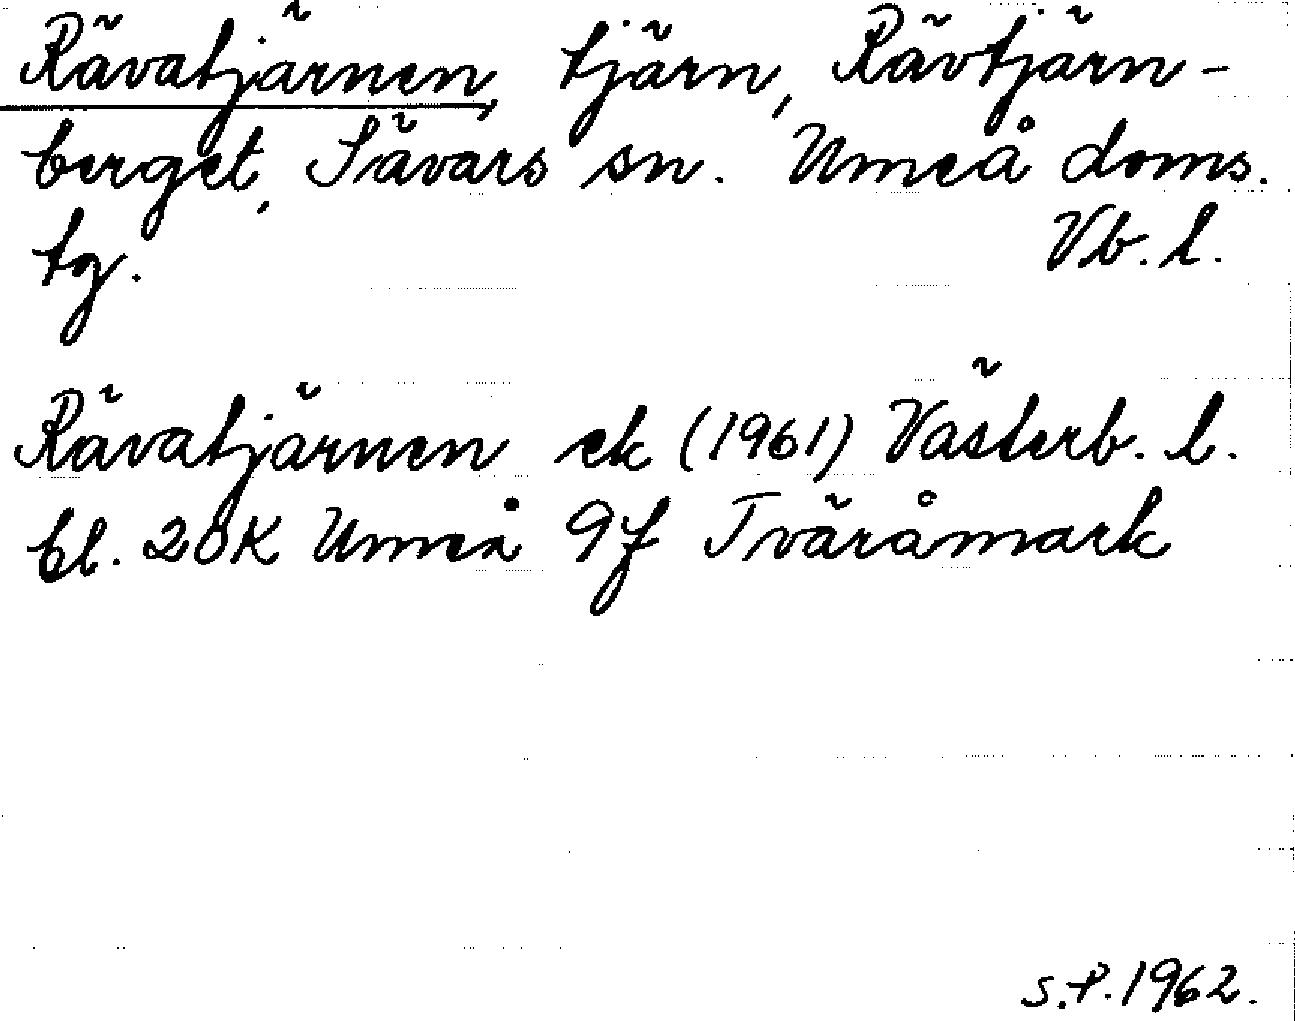 Rävatjärnen, tjärn, Rävtjärn-
berget, Sävars sn. Umeå doms.
tg. Vb. l.
Rävatjärnen ek (1961) Västerb. l.
bl. 20K Umeå 9f Tväråmark
S.P. 1962.